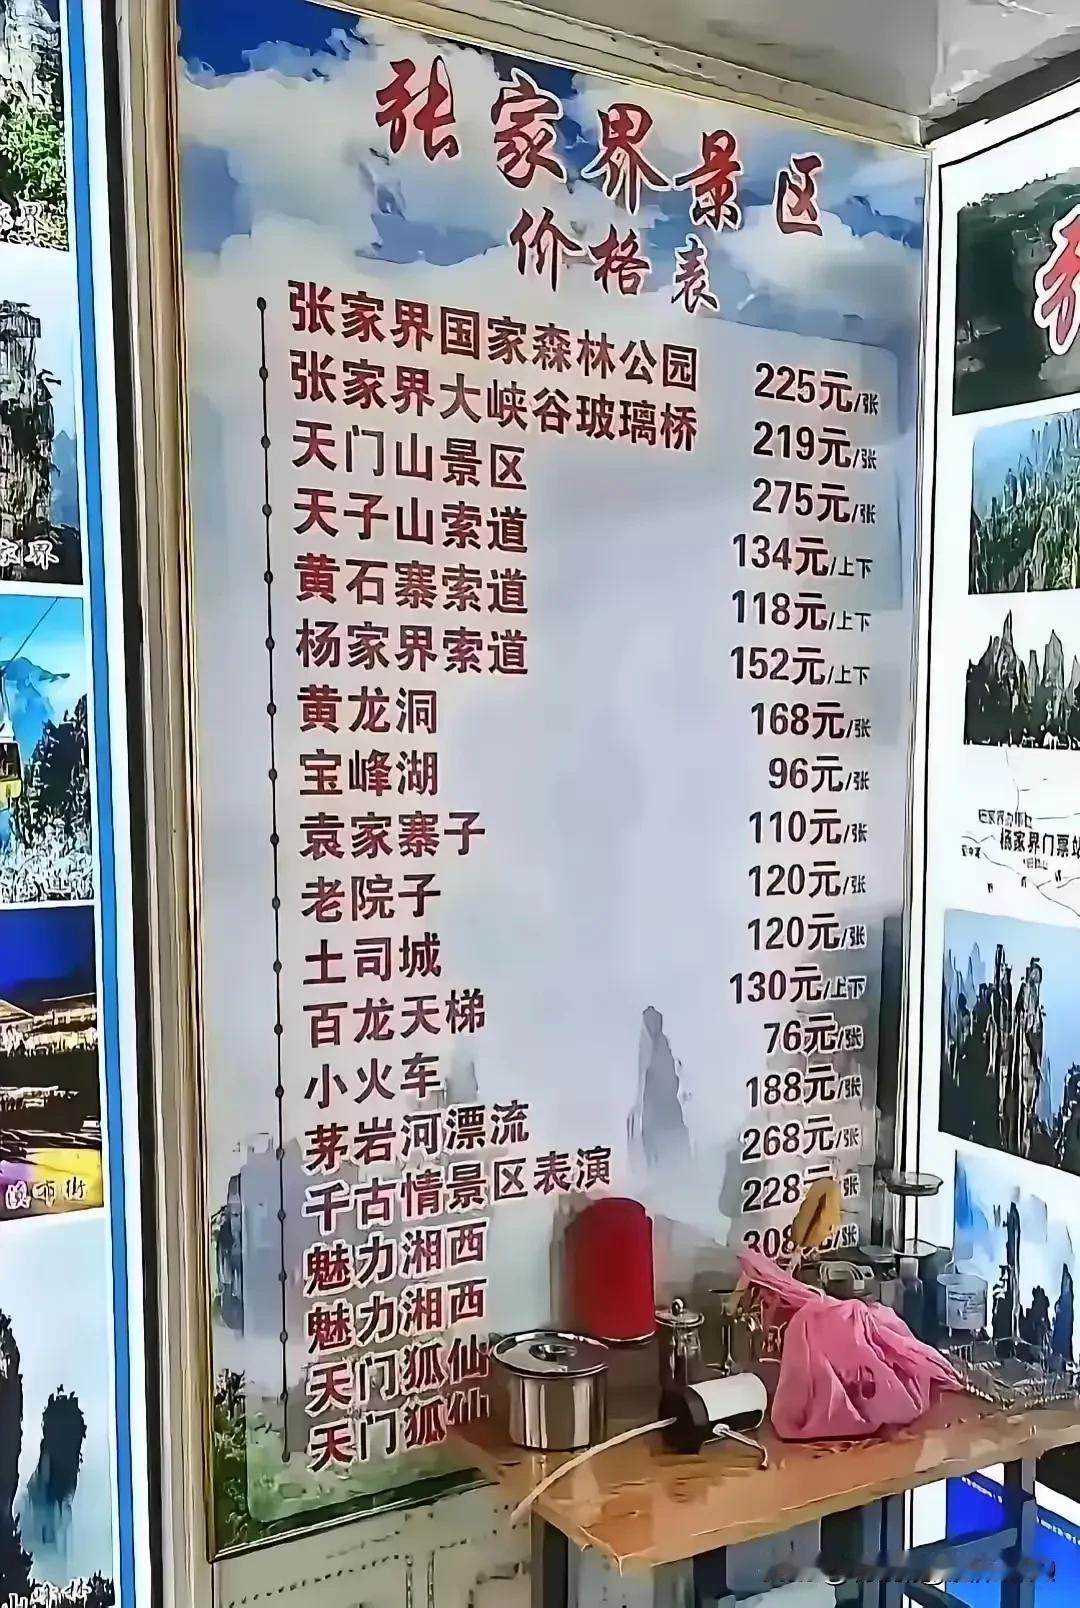 张家界景区
价格表
张家界国家森林公园 225元/张
张家界大峡谷玻璃桥 219元/张
天门山景区 275元/张
天子山索道 134元/上下
黄石寨索道 118元/上下
杨家界索道 152元/上下
黄龙洞 168元/张
宝峰湖 96元/张
袁家寨子 110元/张
老院子 120元/张
土司城 120元/张
百龙天梯 130元/上下
小火车 76元/张
茅岩河漂流 188元/张
千古情景区表演 268元/张
魅力湘西 228元/张
魅力湘西 308元/张
天门狐仙
天门狐仙
家界
溪布街
杨家界门票站